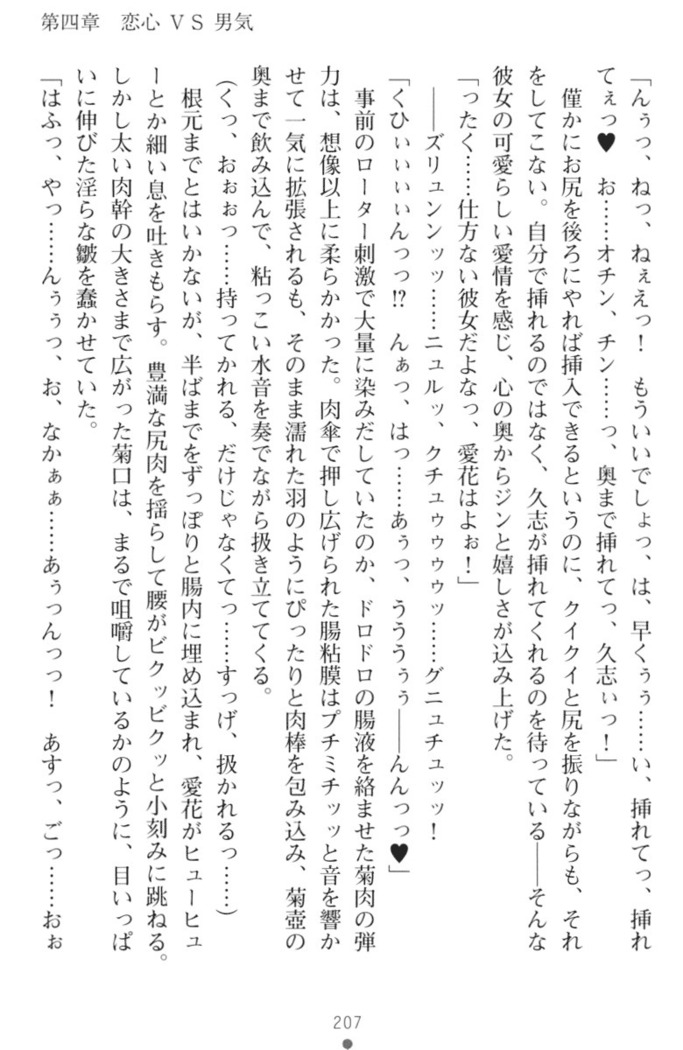 第四章　恋心 VS 男気
「んぅっ、ねっ、ねぇえっ！　もういいでしょっ、は、早くぅぅ……い、挿れてっ、挿れ
てぇっ♥　お……オチン、チン……っ、奥まで挿れてっ、久志ぃっ！」
　僅かにお尻を後ろにやれば挿入できるというのに、クイクイと尻を振りながらも、それ
をしてこない。自分で挿れるのではなく、久志が挿れてくれるのを待っている――そんな
彼女の可愛らしい愛情を感じ、心の奥からジンと嬉しさが込み上げた。
「ったく……仕方ない彼女だよなっ、愛花はよぉ！」
　――ズリュンンッッ……ニュルッ、クチュゥゥゥゥッ……グニュチュッッ！
「くひぃぃぃぃんっっ!?　んぁっ、はっ……あぅっ、うううぅぅ――んんっっ♥」
　事前のローター刺激で大量に染みだしていたのか、ドロドロの腸液を絡ませた菊肉の弾
力は、想像以上に柔らかかった。肉傘で押し広げられた腸粘膜はプチミチッッと音を響か
せて一気に拡張されるも、そのまま濡れた羽のようにぴったりと肉棒を包み込み、菊壺の
奥まで飲み込んで、粘っこい水音を奏でながら扱き立ててくる。
（くっ、おぉぉっ……持ってかれる、だけじゃなくてっ……すっげ、扱かれるっ……）
　根元までとはいかないが、半ばまでをずっぽりと腸内に埋め込まれ、愛花がヒューヒュ
ーとか細い息を吐きもらす。豊満な尻肉を揺らして腰がビクッビクッと小刻みに跳ねる。
しかし太い肉幹の大きさまで広がった菊口は、まるで咀嚼しているかのように、目いっぱ
いに伸びた淫らな皺を蠢かせていた。
「はふっ、やっ……んぅぅっ、お、なかぁぁ……あぅっんっっ！　あすっ、ごっ……おぉ
207